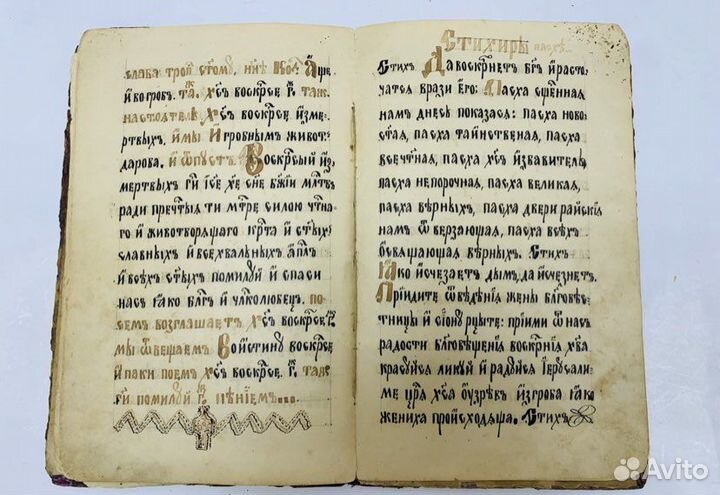 слава троп҃ ст҃ому, нн҃ѣ Конⷣ. Аще
и҆ во гробъ. та. хс҃ъ воскресе г҃. таже
настоѧтель хс҃ъ воскресе и҆з̾ме-
ртвыхъ. и҆ мы И҆ гробнымъ живот
дарова. и҆ ѿпустъ. Воскр҃сый и҆з̾
мертвыхъ гд҃и і҆с҃е хе҃ сн҃е бж҃їи мл҃твъ
ради преч҃тыѧ ти мт҃ре силою чт҃на-
го и҆ животворѧщаго крт҃а и҆ ст҃ыхъ
славныхъ и҆ всехвальныхъ а҆пл҃ъ
и҆ всѣхъ ст҃ыхъ помилꙋй и҆ спаси
насъ ꙗ҆ко бл҃гъ и҆ чл҃колюбецъ. по-
семъ возглашаетъ хс҃ъ воскресе. г҃.
мы ѿвещаемъ. Воистинꙋ воскресе
И҆ паки поемъ хс҃ъ воскресе. г҃. таже
гд҃и помилꙋй г҃. пѣнїемъ...
Стихиры пасхѣ...
Стихъ Да воскр҃нетъ бг҃ъ и҆ расто-
чатсѧ врази е҆го: Пасха сщ҃еннаѧ
намъ днесь показасѧ: пасха нова
ст҃аѧ, пасха таинственаѧ, пасха
всечт҃наѧ, пасха хс҃ъ и҆збавитель,
пасха непорочнаѧ, пасха великаѧ,
пасха вѣрныхъ, пасха двери райскїѧ
намъ ѿверзающаѧ, пасха всѣхъ
ѡ҆свѧщающаѧ вѣрныхъ. Стихъ
Ꙗ҆ко и҆счезаетъ дымъ, да и҆счезнетъ.
Прїидите ѿ вѣдѣнїѧ жены бл҃говѣс-
тницы и҆ сїѡнꙋ рцыте: прїими ѿ насъ
радости бл҃говѣщенїѧ воскр҃нїѧ хв҃а
красꙋйсѧ ликꙋй и҆ радꙋйсѧ І҆ерꙋсали-
ме цр҃ѧ хс҃а ѹ҆зрѣвъ и҆з̾гроба ꙗ҆ко
жениха происходѧща. Стихъ
Avito